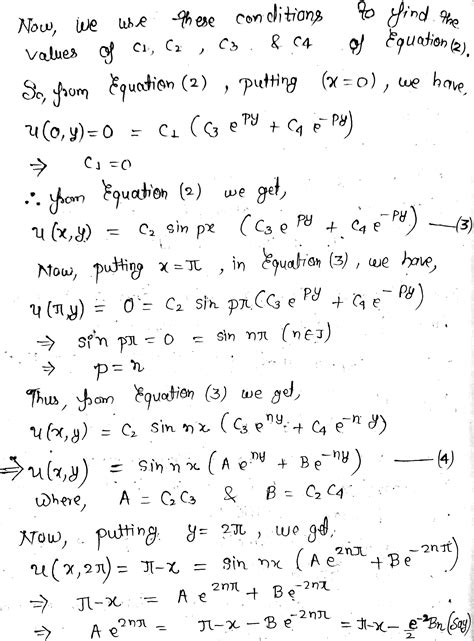 Now, we use these conditions to find the
values of C1, C2, C3 & C4 of Equation (2).
So, from Equation (2), putting (x=0), we have,
u(0,y)=0 = C1 (C3 e^py + C4 e^-py)
⇒ C1=0
∴ from Equation (2) we get,
u(x,y) = C2 sin px (C3 e^py + C4 e^-py) —(3)
Now, putting x=π, in Equation (3), we have,
u(π,y) = 0 = C2 sin pπ (C3 e^py + C4 e^-py)
⇒ sin pπ = 0 = sin nπ (n∈J)
⇒ p=n
Thus, from Equation (3) we get,
u(x,y) = C2 sin nx (C3 e^ny + C4 e^-ny)
⇒ u(x,y) = sin nx (A e^ny + B e^-ny) —(4)
Where, A = C2C3 & B = C2C4
Now, putting y=2π, we get,
u(x,2π) = π-x = sin nx (A e^2nπ + B e^-2nπ)
⇒ π-x = A e^2nπ + B e^-2nπ
⇒ A e^2nπ = π-x - B e^-2nπ = π-x - Bn (say)